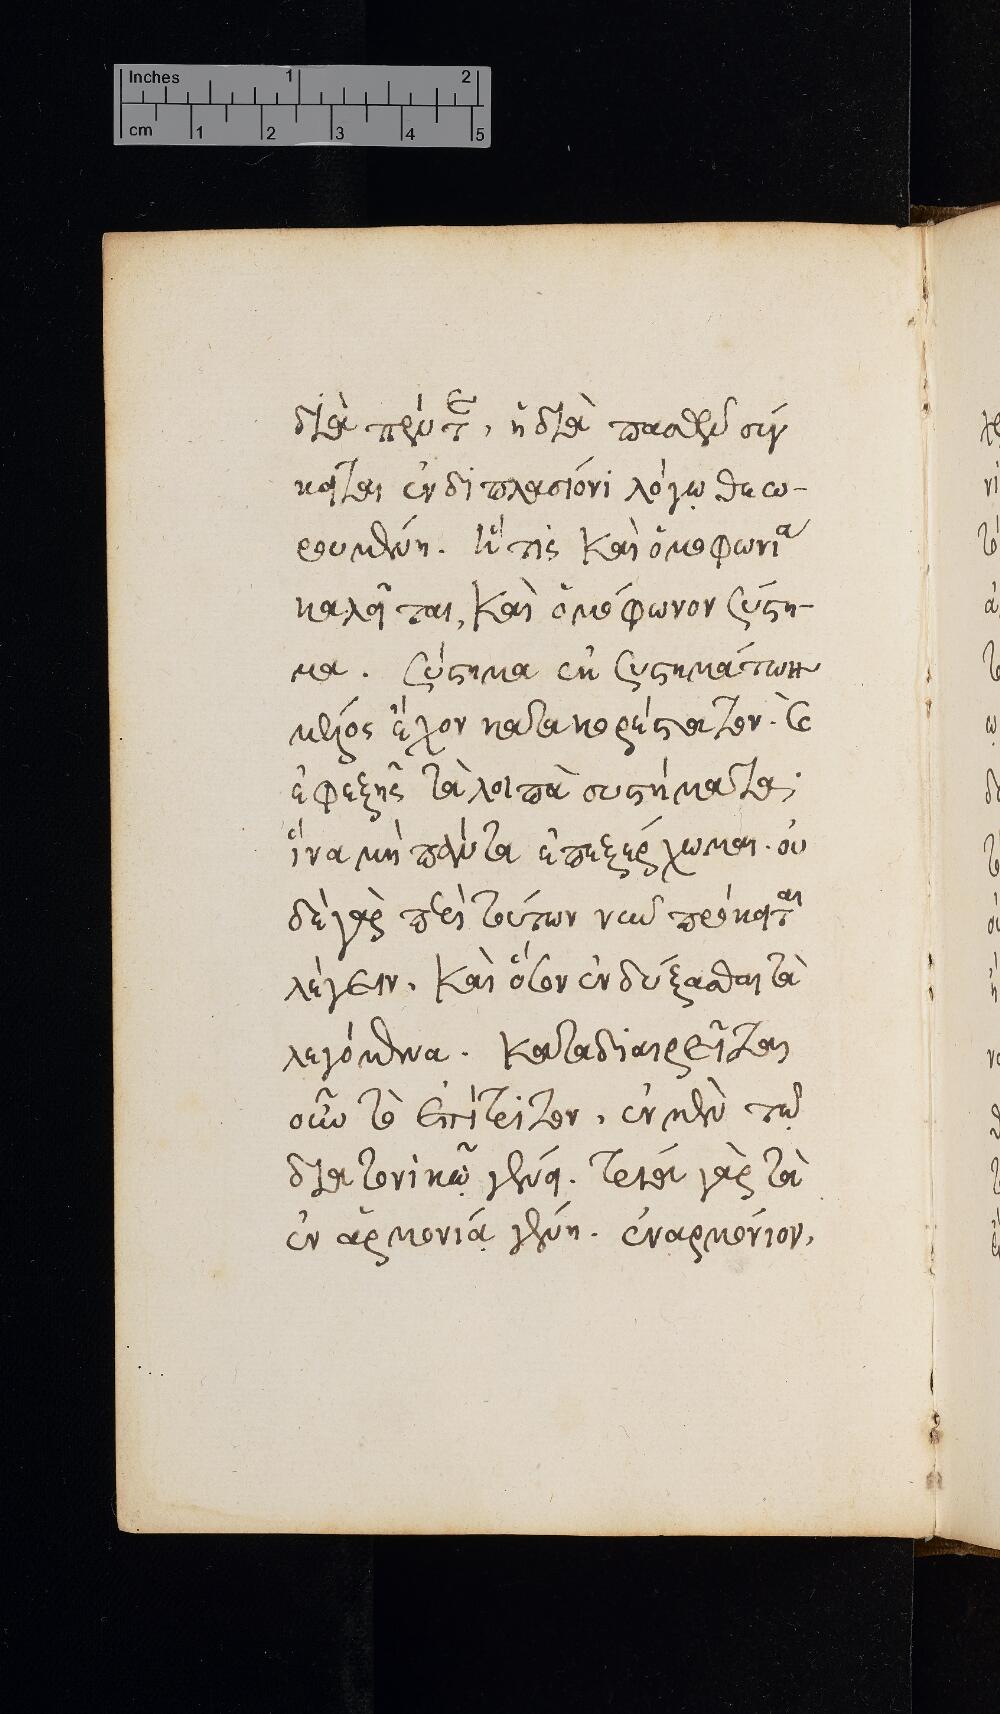 Inches 1 2
cm 1 2 3 4 5
διὰ πέντε, ἡ διὰ πασῶν σύγ
κειται ἐν διπλασίονι λόγῳ θεω-
ρουμένη. ἥτις καὶ ὁμοφωνία
καλεῖται, καὶ ὁμόφωνον σύστη-
μα. σύστημα ἐκ συστημάτων
μέλος ἔχον κατακορέστατον. καὶ
ἐφεξῆς τὰ λοιπὰ συστήματα·
ἵνα μὴ πάντα ἐπεξέρχωμαι. οὐ
δὲ γὰρ περὶ τούτων νῦν πρόκειται
λέγειν. καὶ ὅσον ἐνδύξασθαι τὰ
λεγόμενα. καταδιαιρεῖται
οὖν τὸ ἐπίτριτον, ἐν μὲν τῷ
διατονικῷ γένει. τρία γὰρ τὰ
ἐν ἁρμονίᾳ γένη. ἐναρμόνιον,